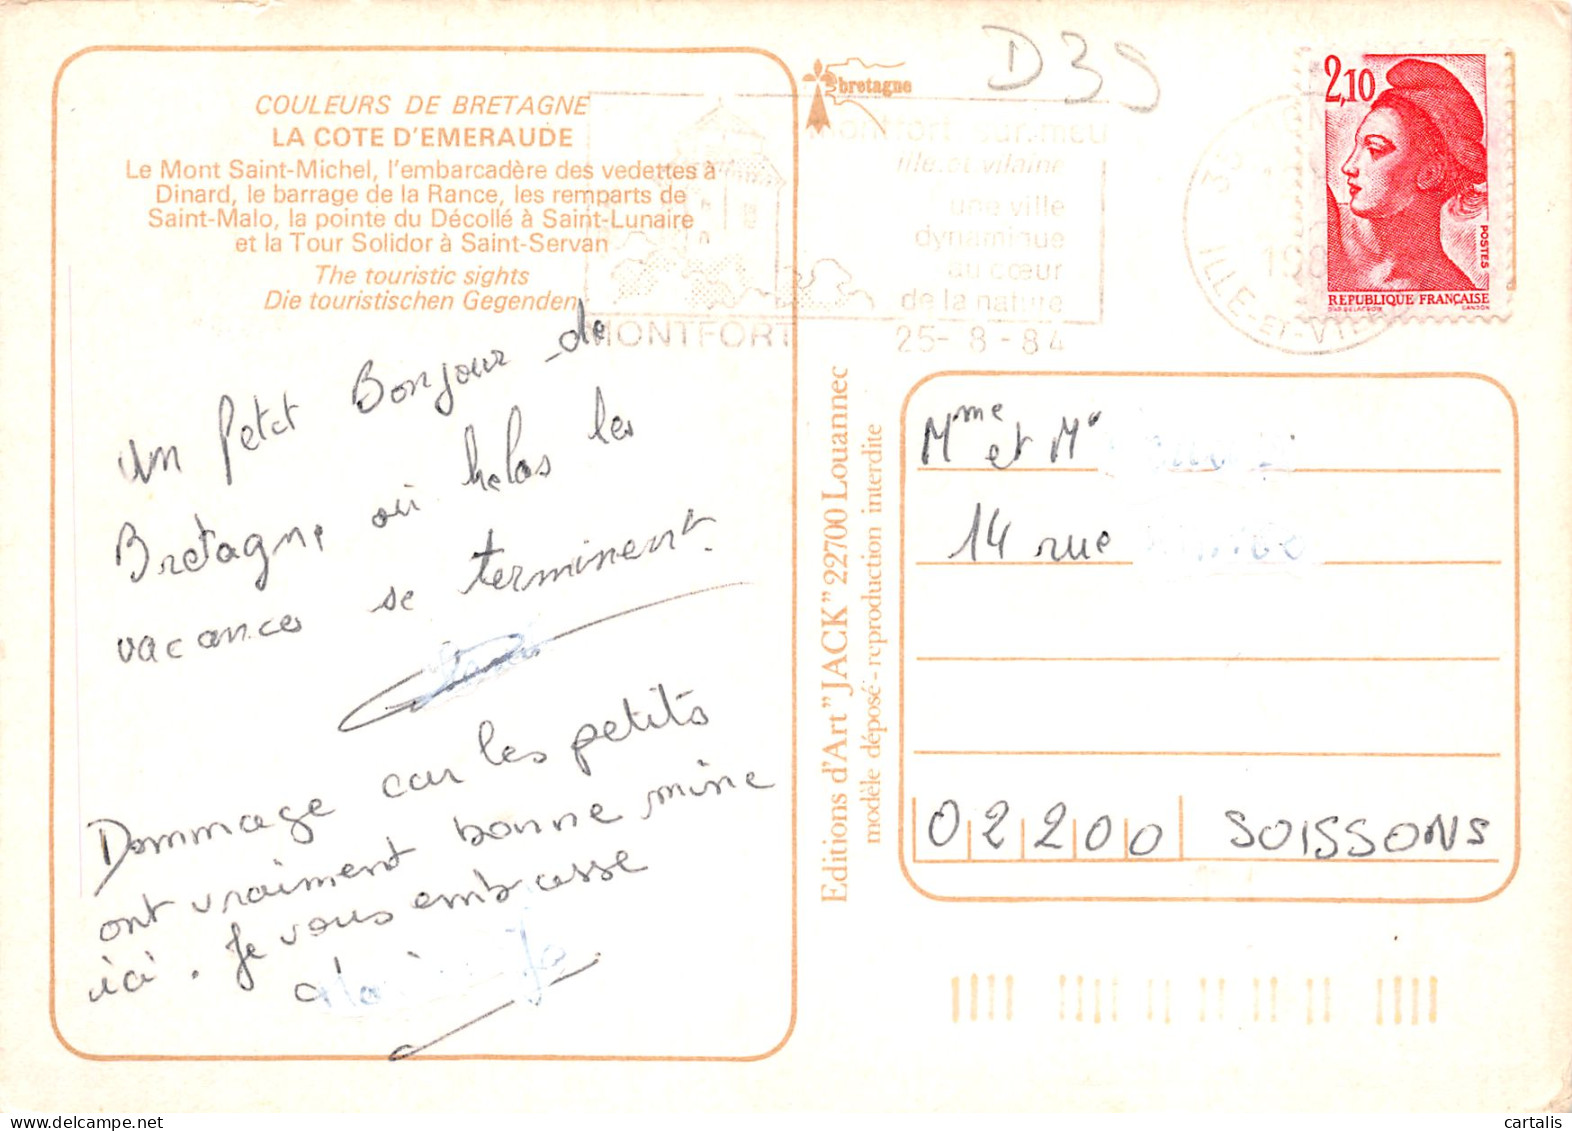 COULEURS DE BRETAGNE
LA COTE D'EMERAUDE
Le Mont Saint-Michel, l'embarcadère des vedettes à
Dinard, le barrage de la Rance, les remparts de
Saint-Malo, la pointe du Décollé à Saint-Lunaire
et la Tour Solidor à Saint-Servan
The touristic sights
Die touristischen Gegenden
un Petit Bonjour de
Bretagne, où helas les
vacances se terminent.
Dommage car les petits
ont vraiment bonne mine
ici. Je vous embrasse
bretagne
D39
montfort sur meu
ille et vilaine
une ville
dynamique
au cœur
de la nature
MONTFORT 25-8-84
ILLE-ET-VIL
2,10
POSTES
REPUBLIQUE FRANÇAISE
D'AP. DELACROIX GANDON
Editions d'Art "JACK" 22700 Louannec
modèle déposé - reproduction interdite
Mme et Mr
14 rue
02200 SOISSONS
cartalis